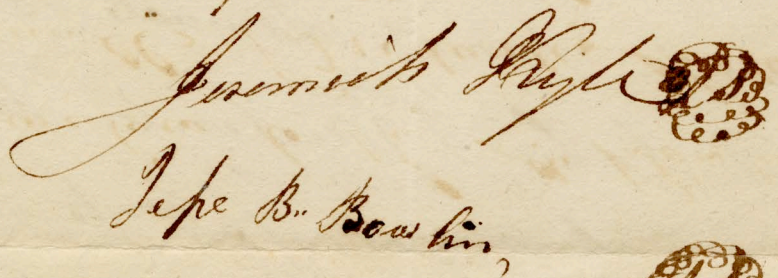 Jeremiah Kyle
Jesse B. Bowlin